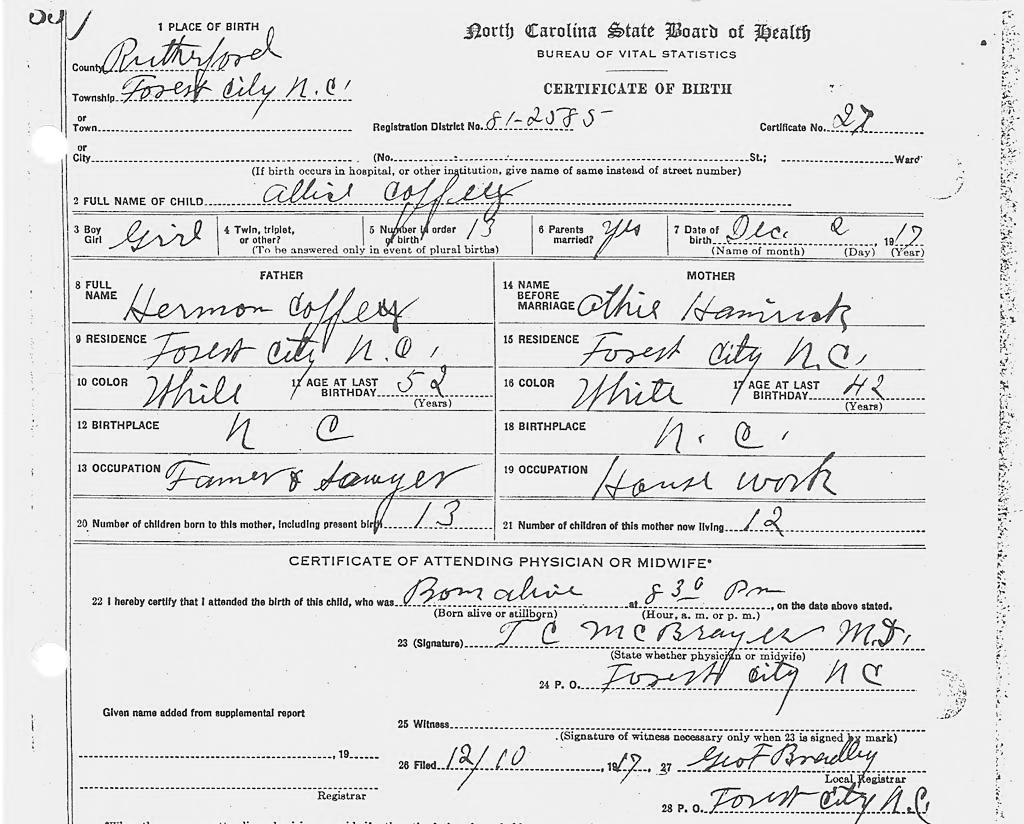 33
1 PLACE OF BIRTH
North Carolina State Board of Health
BUREAU OF VITAL STATISTICS
County Rutherford
Township Forest City N.C.
CERTIFICATE OF BIRTH
or
Town
Registration District No. 81-2585- Certificate No. 27
or
City (No. St.; Ward
(If birth occurs in hospital, or other institution, give name of same instead of street number)
2 FULL NAME OF CHILD Allie Coffey
3 Boy Girl Girl 4 Twin, triplet, or other? 5 Number in order of birth 13 6 Parents married? Yes 7 Date of birth Dec. 2, 1917
(To be answered only in event of plural births) (Name of month) (Day) (Year)
FATHER MOTHER
8 FULL NAME Hermon Coffey 14 NAME BEFORE MARRIAGE Hamrick
9 RESIDENCE Forest City N.C. 15 RESIDENCE Forest City N.C.
10 COLOR While 11 AGE AT LAST BIRTHDAY 52 (Years) 16 COLOR White 17 AGE AT LAST BIRTHDAY 42 (Years)
12 BIRTHPLACE N C 18 BIRTHPLACE N. C.
13 OCCUPATION Famer & Sawyer 19 OCCUPATION House work
20 Number of children born to this mother, including present birth 13 21 Number of children of this mother now living 12
CERTIFICATE OF ATTENDING PHYSICIAN OR MIDWIFE*
22 I hereby certify that I attended the birth of this child, who was Born alive at 8 30 Pm, on the date above stated.
(Born alive or stillborn) (Hour, a. m. or p. m.)
23 (Signature) T C McBrayer M.D.
(State whether physician or midwife)
24 P. O. Forest City N C
Given name added from supplemental report
25 Witness
(Signature of witness necessary only when 23 is signed by mark)
, 19 26 Filed 12/10, 1917, 27 Geo F Bradley
Local Registrar
Registrar
28 P. O. Forest City N.C.